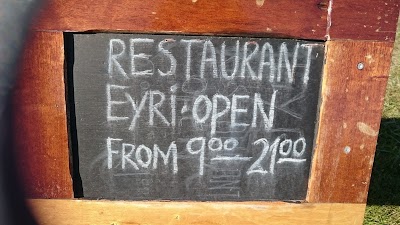 RESTAURANT
EYRI · OPEN
FROM 9⁰⁰ - 21⁰⁰